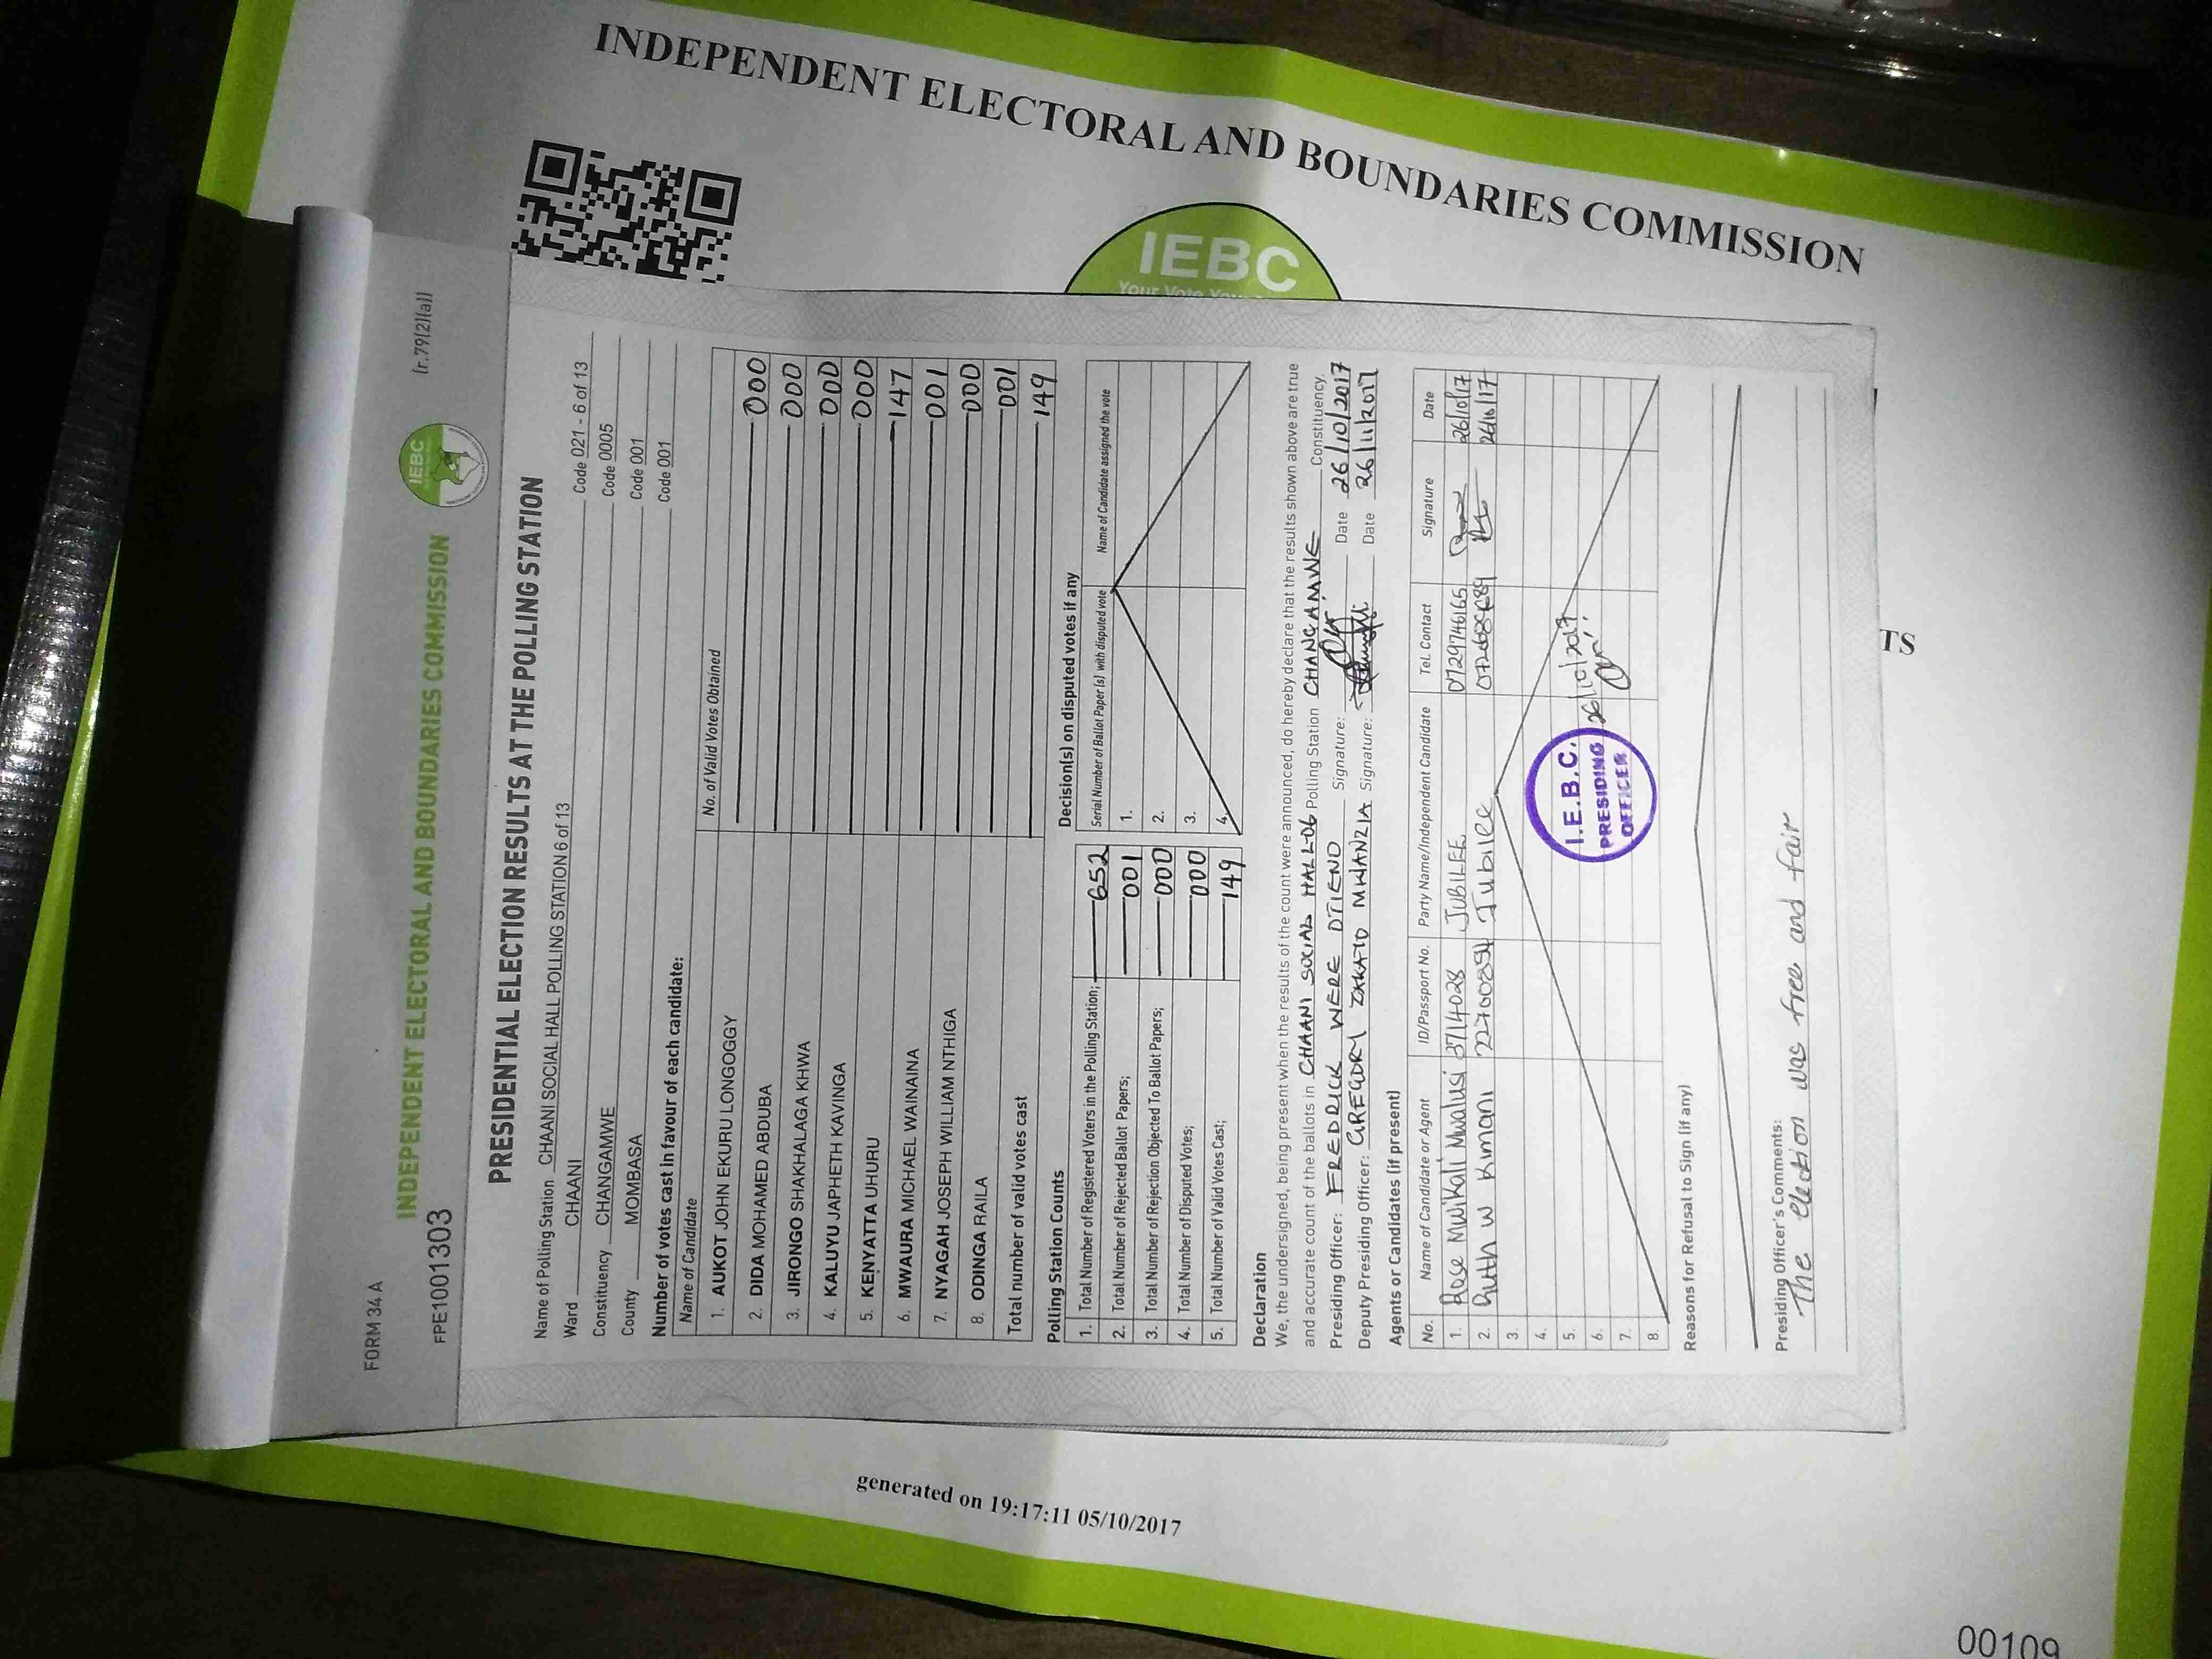 INDEPENDENT ELECTORAL AND BOUNDARIES COMMISSION
IEBC
FORM 34 A
INDEPENDENT ELECTORAL AND BOUNDARIES COMMISSION
IEBC
(r.79(2)(a))
FPE1001303
PRESIDENTIAL ELECTION RESULTS AT THE POLLING STATION
Name of Polling Station CHAANI SOCIAL HALL POLLING STATION 6 of 13 Code 021 - 6 of 13
Ward CHAANI Code 0005
Constituency CHANGAMWE Code 001
County MOMBASA Code 001
Number of votes cast in favour of each candidate:
Name of Candidate No. of Valid Votes Obtained
1. AUKOT JOHN EKURU LONGOGGY 000
2. DIDA MOHAMED ABDUBA 000
3. JIRONGO SHAKHALAGA KHWA 000
4. KALUYU JAPHETH KAVINGA 000
5. KENYATTA UHURU 147
6. MWAURA MICHAEL WAINAINA 001
7. NYAGAH JOSEPH WILLIAM NTHIGA 000
8. ODINGA RAILA 001
Total number of valid votes cast 149
Polling Station Counts
1. Total Number of Registered Voters in the Polling Station; 652
2. Total Number of Rejected Ballot Papers; 001
3. Total Number of Rejection Objected To Ballot Papers; 000
4. Total Number of Disputed Votes; 000
5. Total Number of Valid Votes Cast; 149
Decision(s) on disputed votes if any
Serial Number of Ballot Paper (s) with disputed vote Name of Candidate assigned the vote
1.
2.
3.
4.
Declaration
We, the undersigned, being present when the results of the count were announced, do hereby declare that the results shown above are true
and accurate count of the ballots in CHAANI SOCIAL HALL-06 Polling Station CHANGAMWE Constituency.
Presiding Officer: FREDRICK WERE OTIENO Signature: Date 26/10/2017
Deputy Presiding Officer: GREGORY MWANZIA Signature: Date 26/11/2017
Agents or Candidates (if present)
No. Name of Candidate or Agent ID/Passport No. Party Name/Independent Candidate Tel. Contact Signature Date
1. Rose Mwikali Mwalusi 3714028 JUBILEE 0729746165 26/10/17
2. Ruth W Kimani Jubilee 26/10/17
3.
4.
5.
6.
7.
8.
I.E.B.C.
PRESIDING
OFFICER
26/10/2017
Reasons for Refusal to Sign (if any)
Presiding Officer's Comments:
The election was free and fair
TS
generated on 19:17:11 05/10/2017
00109